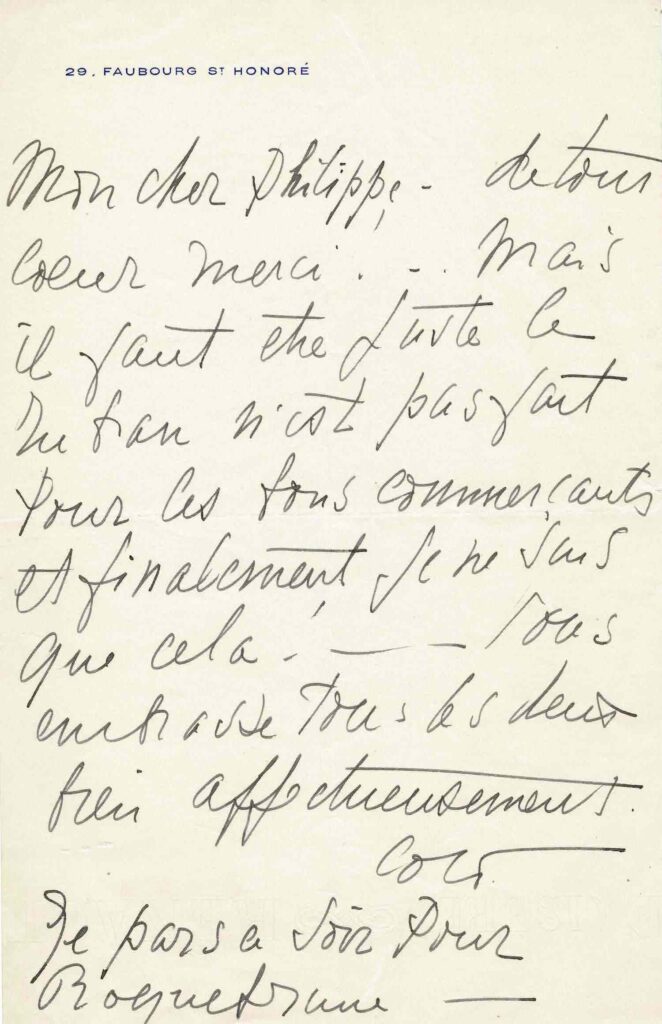 29, FAUBOURG ST HONORÉ
Mon cher Philippe - de tout
coeur merci . . . Mais
il faut etre juste le
ruban n'est pas fait
pour les bons commerçants
et finalement je ne suis
que cela ! — — Vous
embrasse tous les deux
bien affectueusement.
Coco
Je pars ce soir pour
Roquebrune —